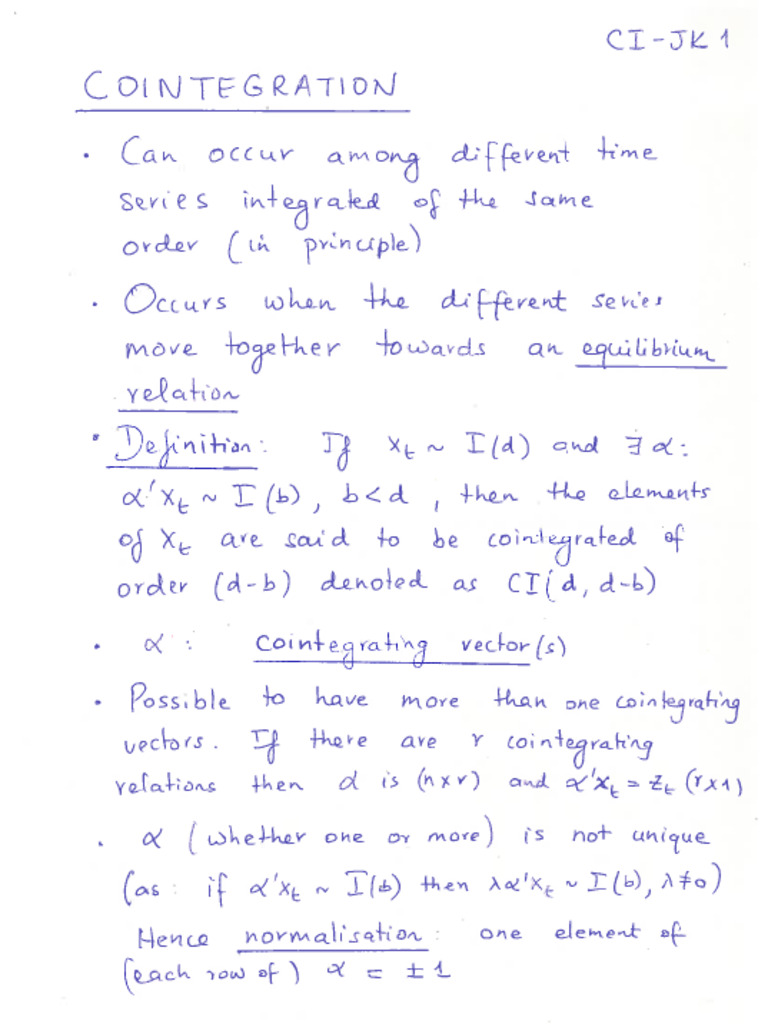 CI-JK 1
COINTEGRATION
• Can occur among different time
series integrated of the same
order (in principle)
• Occurs when the different series
move together towards an equilibrium
relation
• Definition: If Xt ~ I(d) and ∃ α:
α'Xt ~ I(b), b<d, then the elements
of Xt are said to be cointegrated of
order (d-b) denoted as CI(d, d-b)
• α: cointegrating vector(s)
• Possible to have more than one cointegrating
vectors. If there are r cointegrating
relations then α is (n×r) and α'Xt = Zt (r×1)
• α (whether one or more) is not unique
(as: if α'Xt ~ I(b) then λα'Xt ~ I(b), λ≠0)
Hence normalisation: one element of
(each row of) α = ±1